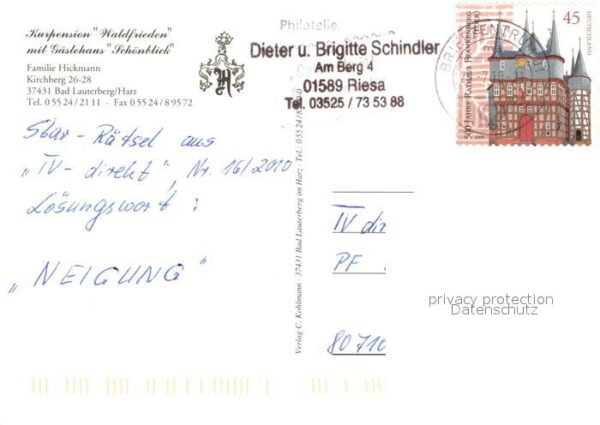 Kurpension "Waldfrieden"
mit Gästehaus "Schönblick"
Familie Hickmann
Kirchberg 26-28
37431 Bad Lauterberg/Harz
Tel. 0 55 24 / 21 11 · Fax 0 55 24 / 8 95 72
Star-Rätsel aus
"TV-direkt", Nr. 16/2010
Lösungswort:
"NEIGUNG"
Philatelie
Dieter u. Brigitte Schindler
Am Berg 4
01589 Riesa
Tel. 03525 / 73 53 88
Verlag C. Kohlmann · 37431 Bad Lauterberg im Harz · Tel.: 0 55 24/
BRIEFZENTRUM
45
DEUTSCHLAND
500 Jahre Rathaus Frankenberg
TV dir
PF
80710
privacy protection
Datenschutz